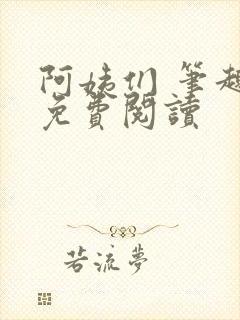 阿姨们 筆趣
免費閱讀
若流夢